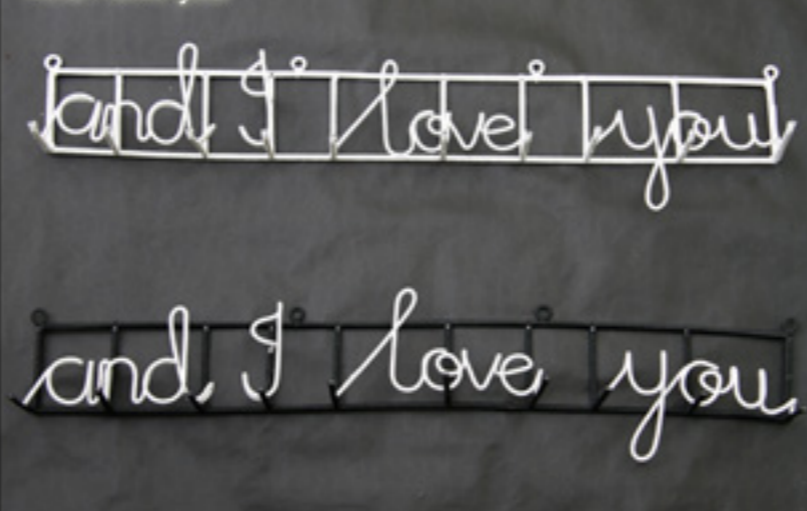 and I love you
and I love you